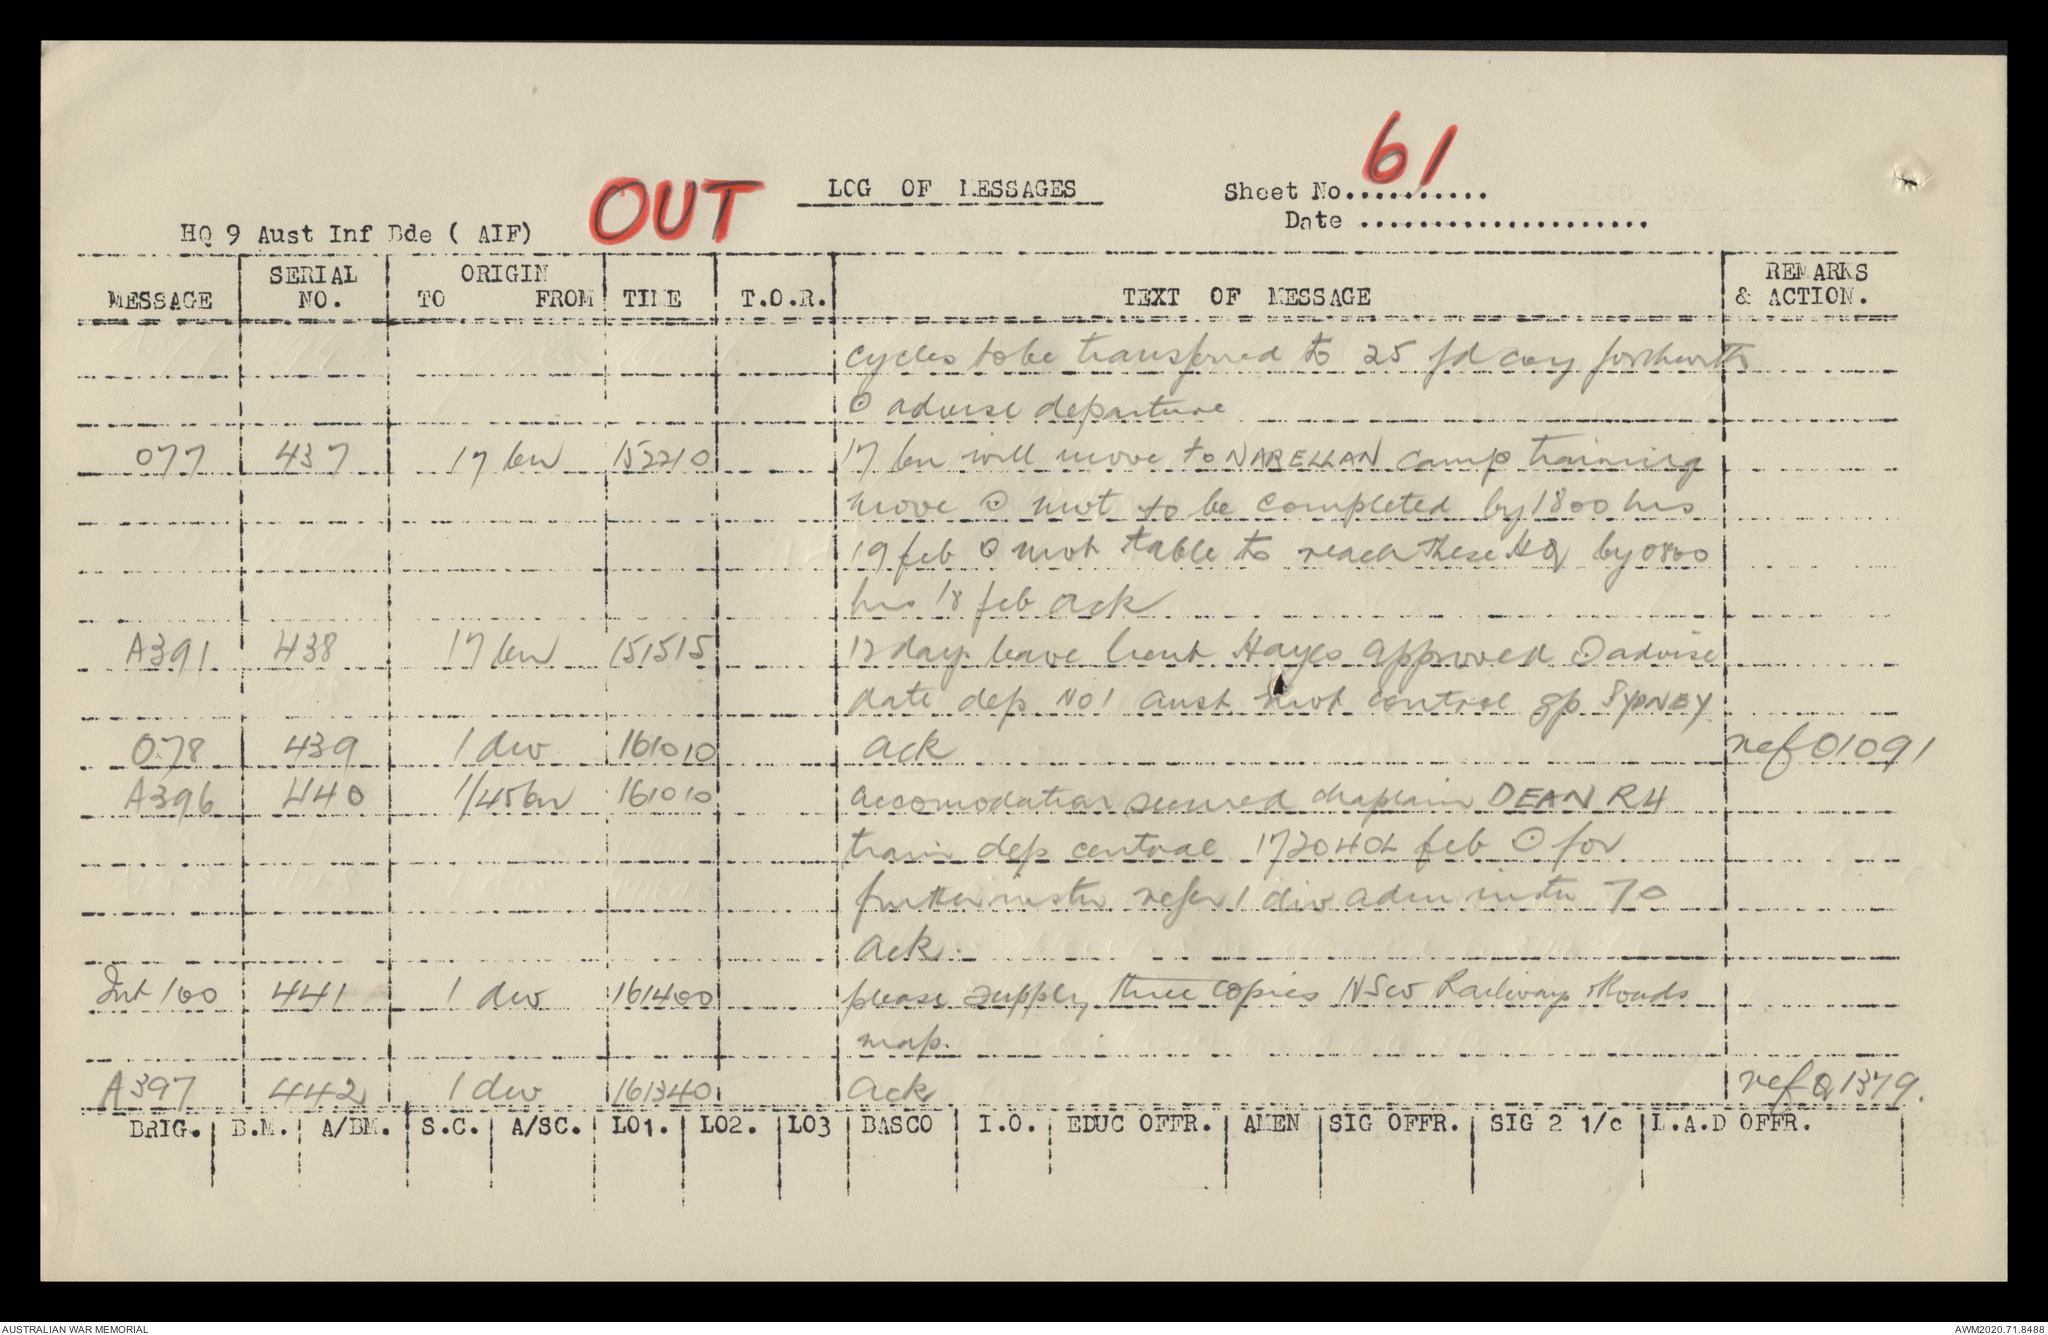 61
OUT
LOG OF MESSAGES
Sheet No...........
Date .....................
HQ 9 Aust Inf Bde ( AIF)
MESSAGE SERIAL NO. ORIGIN TO FROM TIME T.O.R. TEXT OF MESSAGE REMARKS & ACTION.
cycles to be transferred to 25 fd coy forthwith
⊙ advise departure
077 437 17 bn 152210 17 bn will move to NARELLAN camp training
move ⊙ mvt to be completed by 1800 hrs
19 feb ⊙ mvt table to reach these HQ by 0800
hrs 18 feb ack
A391 438 17 bn 151515 12 days leave Lieut Hayes approved ⊙ advise
date dep No 1 aust mvt control gp SYDNEY
078 439 1 div 161010 ack ref O1091
A396 440 1/45 bn 161010 accomodation secured chaplain DEAN RH
train dep central 172040L feb ⊙ for
further instn refer 1 div adm instn 70
ack.
Int 100 441 1 div 161400 please supply three copies NSW Railways & Roads
map.
A397 442 1 div 161340 ack ref Q1379.
BRIG. B.M. A/BM. S.C. A/SC. LO1. LO2. LO3 BASCO I.O. EDUC OFFR. AMEN SIG OFFR. SIG 2 1/c L.A.D OFFR.
AUSTRALIAN WAR MEMORIAL
AWM2020.71.8488